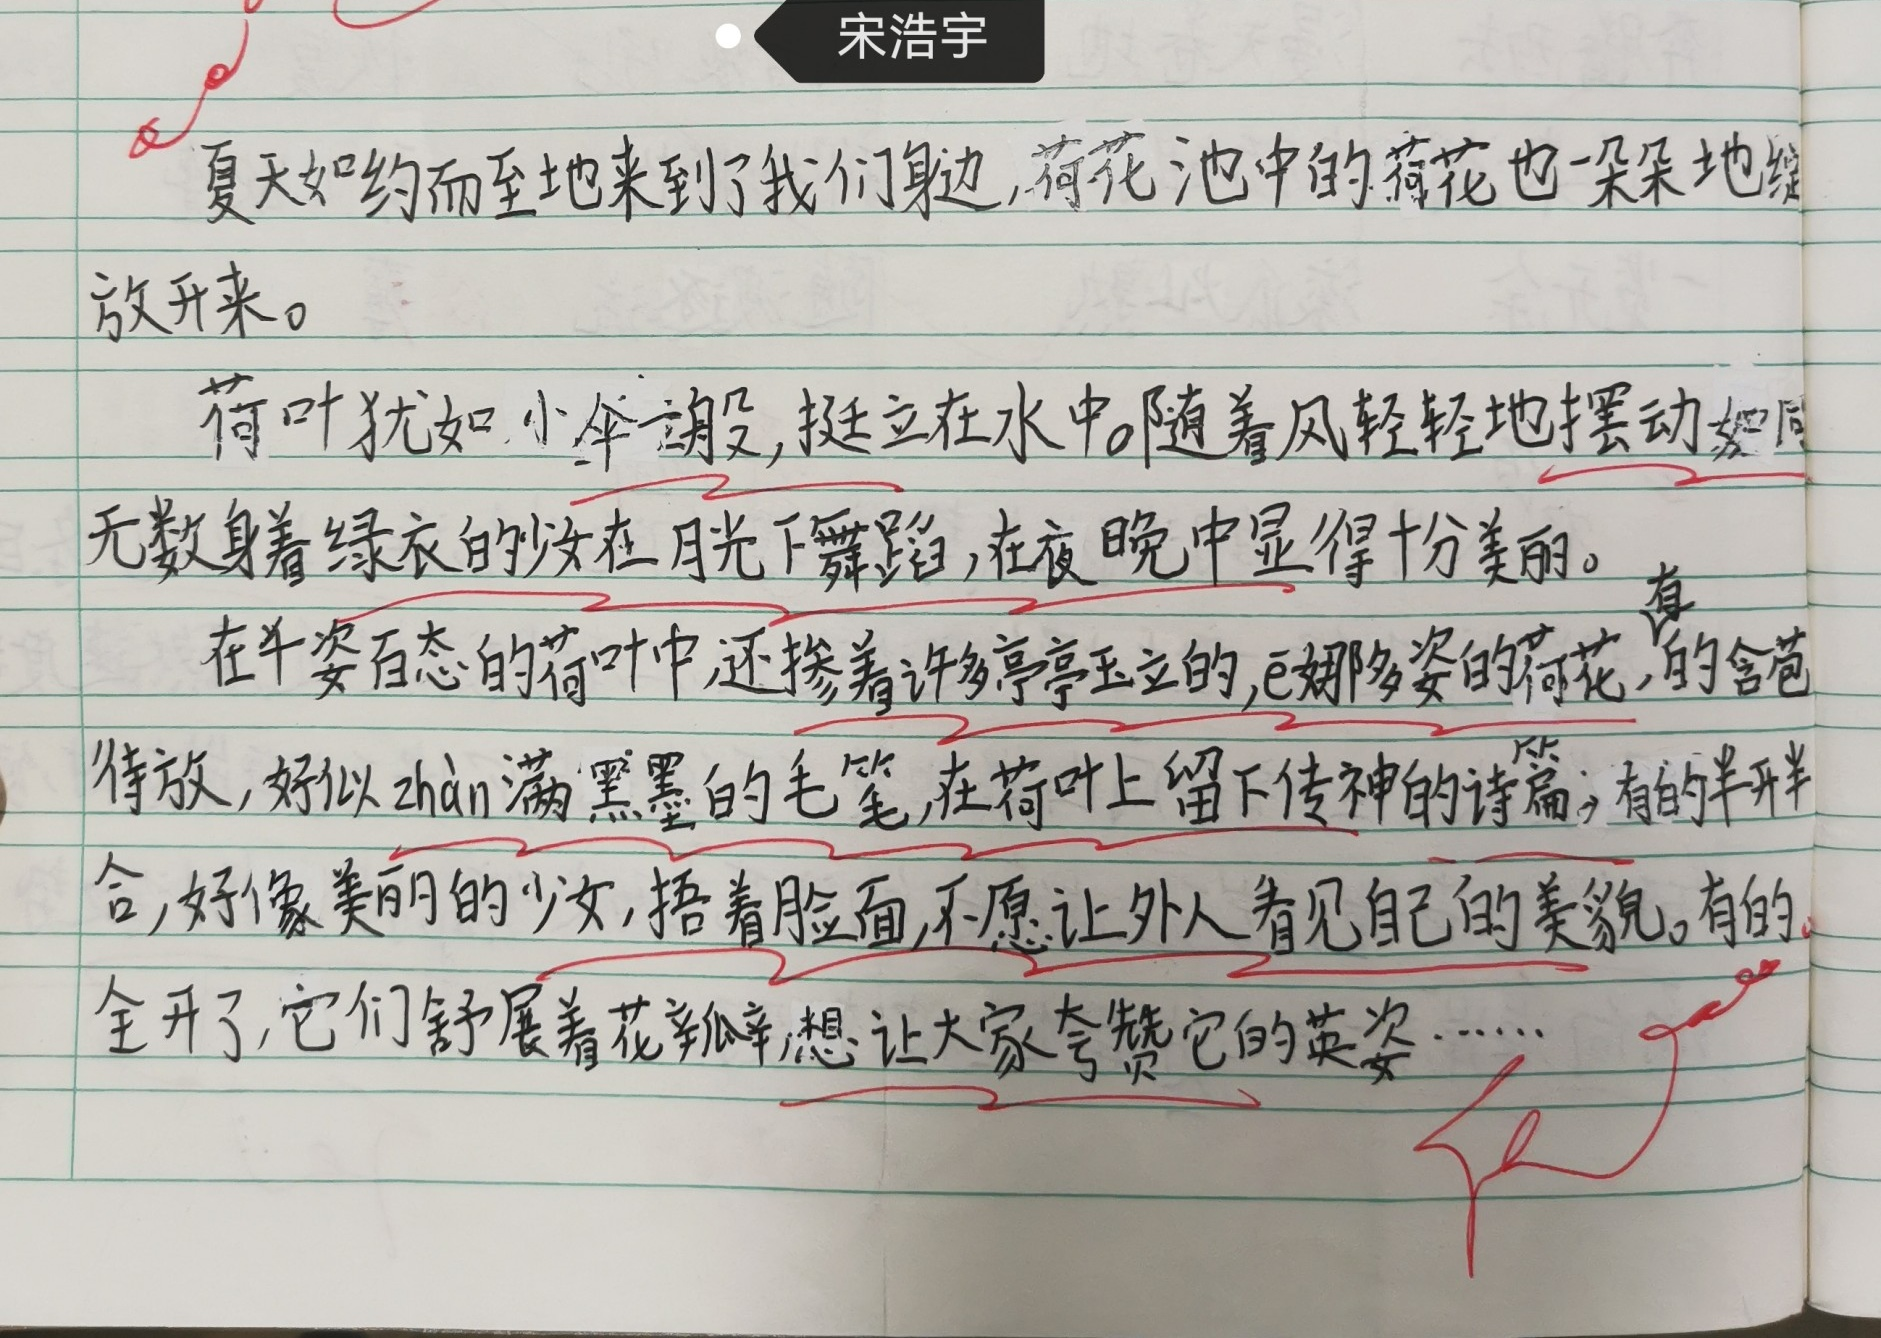 宋浩宇
夏天如约而至地来到了我们身边,荷花池中的荷花也一朵朵地绽
放开来。
荷叶犹如小伞一般,挺立在水中。随着风轻轻地摆动如同
无数身着绿衣的少女在月光下舞蹈,在夜晚中显得十分美丽。
有
在千姿百态的荷叶中,还掺着许多亭亭玉立的,ē娜多姿的荷花,的含苞
待放,好似zhàn满黑墨的毛笔,在荷叶上留下传神的诗篇;有的半开半
合,好像美丽的少女,捂着脸面,不愿让外人看见自己的美貌。有的
全开了,它们舒展着花瓣,想让大家夸赞它的英姿……